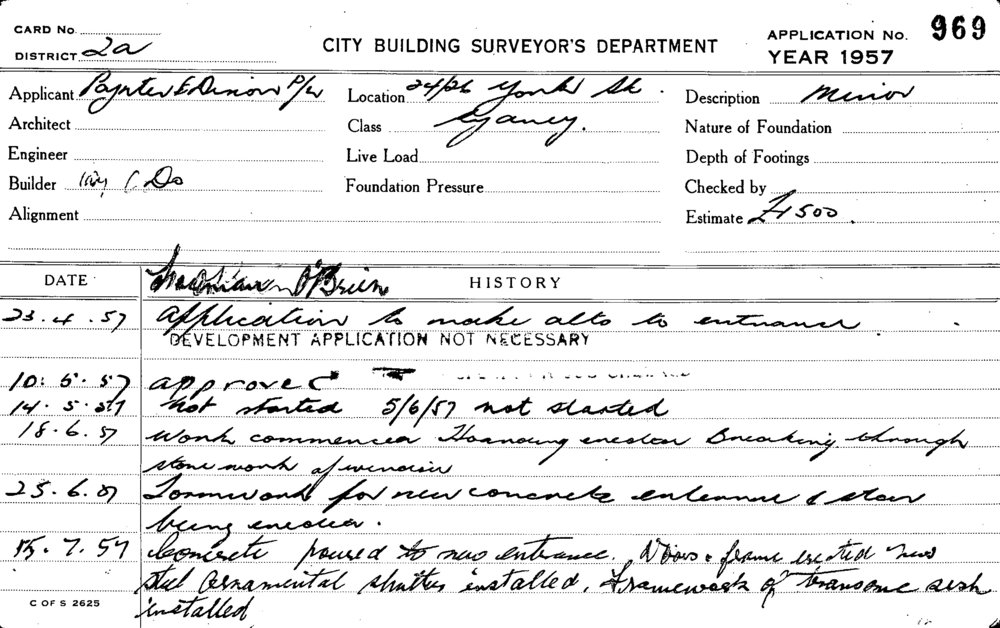 CARD No.
DISTRICT 2a
CITY BUILDING SURVEYOR'S DEPARTMENT
APPLICATION No. 969
YEAR 1957
Applicant Paynter & Dixon P/L
Location 24/26 York St.
Description Minor
Architect
Class
Nature of Foundation
Engineer
Live Load
Depth of Footings
Builder Do
Foundation Pressure
Checked by
Alignment
Estimate £1500.
DATE
O'Brien
HISTORY
23.4.57 Application to make alts to entrance.
DEVELOPMENT APPLICATION NOT NECESSARY
10.5.57 approved
14.5.57 Not started 5/6/57 not started
18.6.57 Work commenced Hoarding erected Breaking through
stone work of window
25.6.57 Formwork for new concrete entrance & stair
being erected.
15.7.57 Concrete poured to new entrance. Doors & frame erected new
steel ornamental shutter installed. Framework of transome sash
installed
C OF S 2625